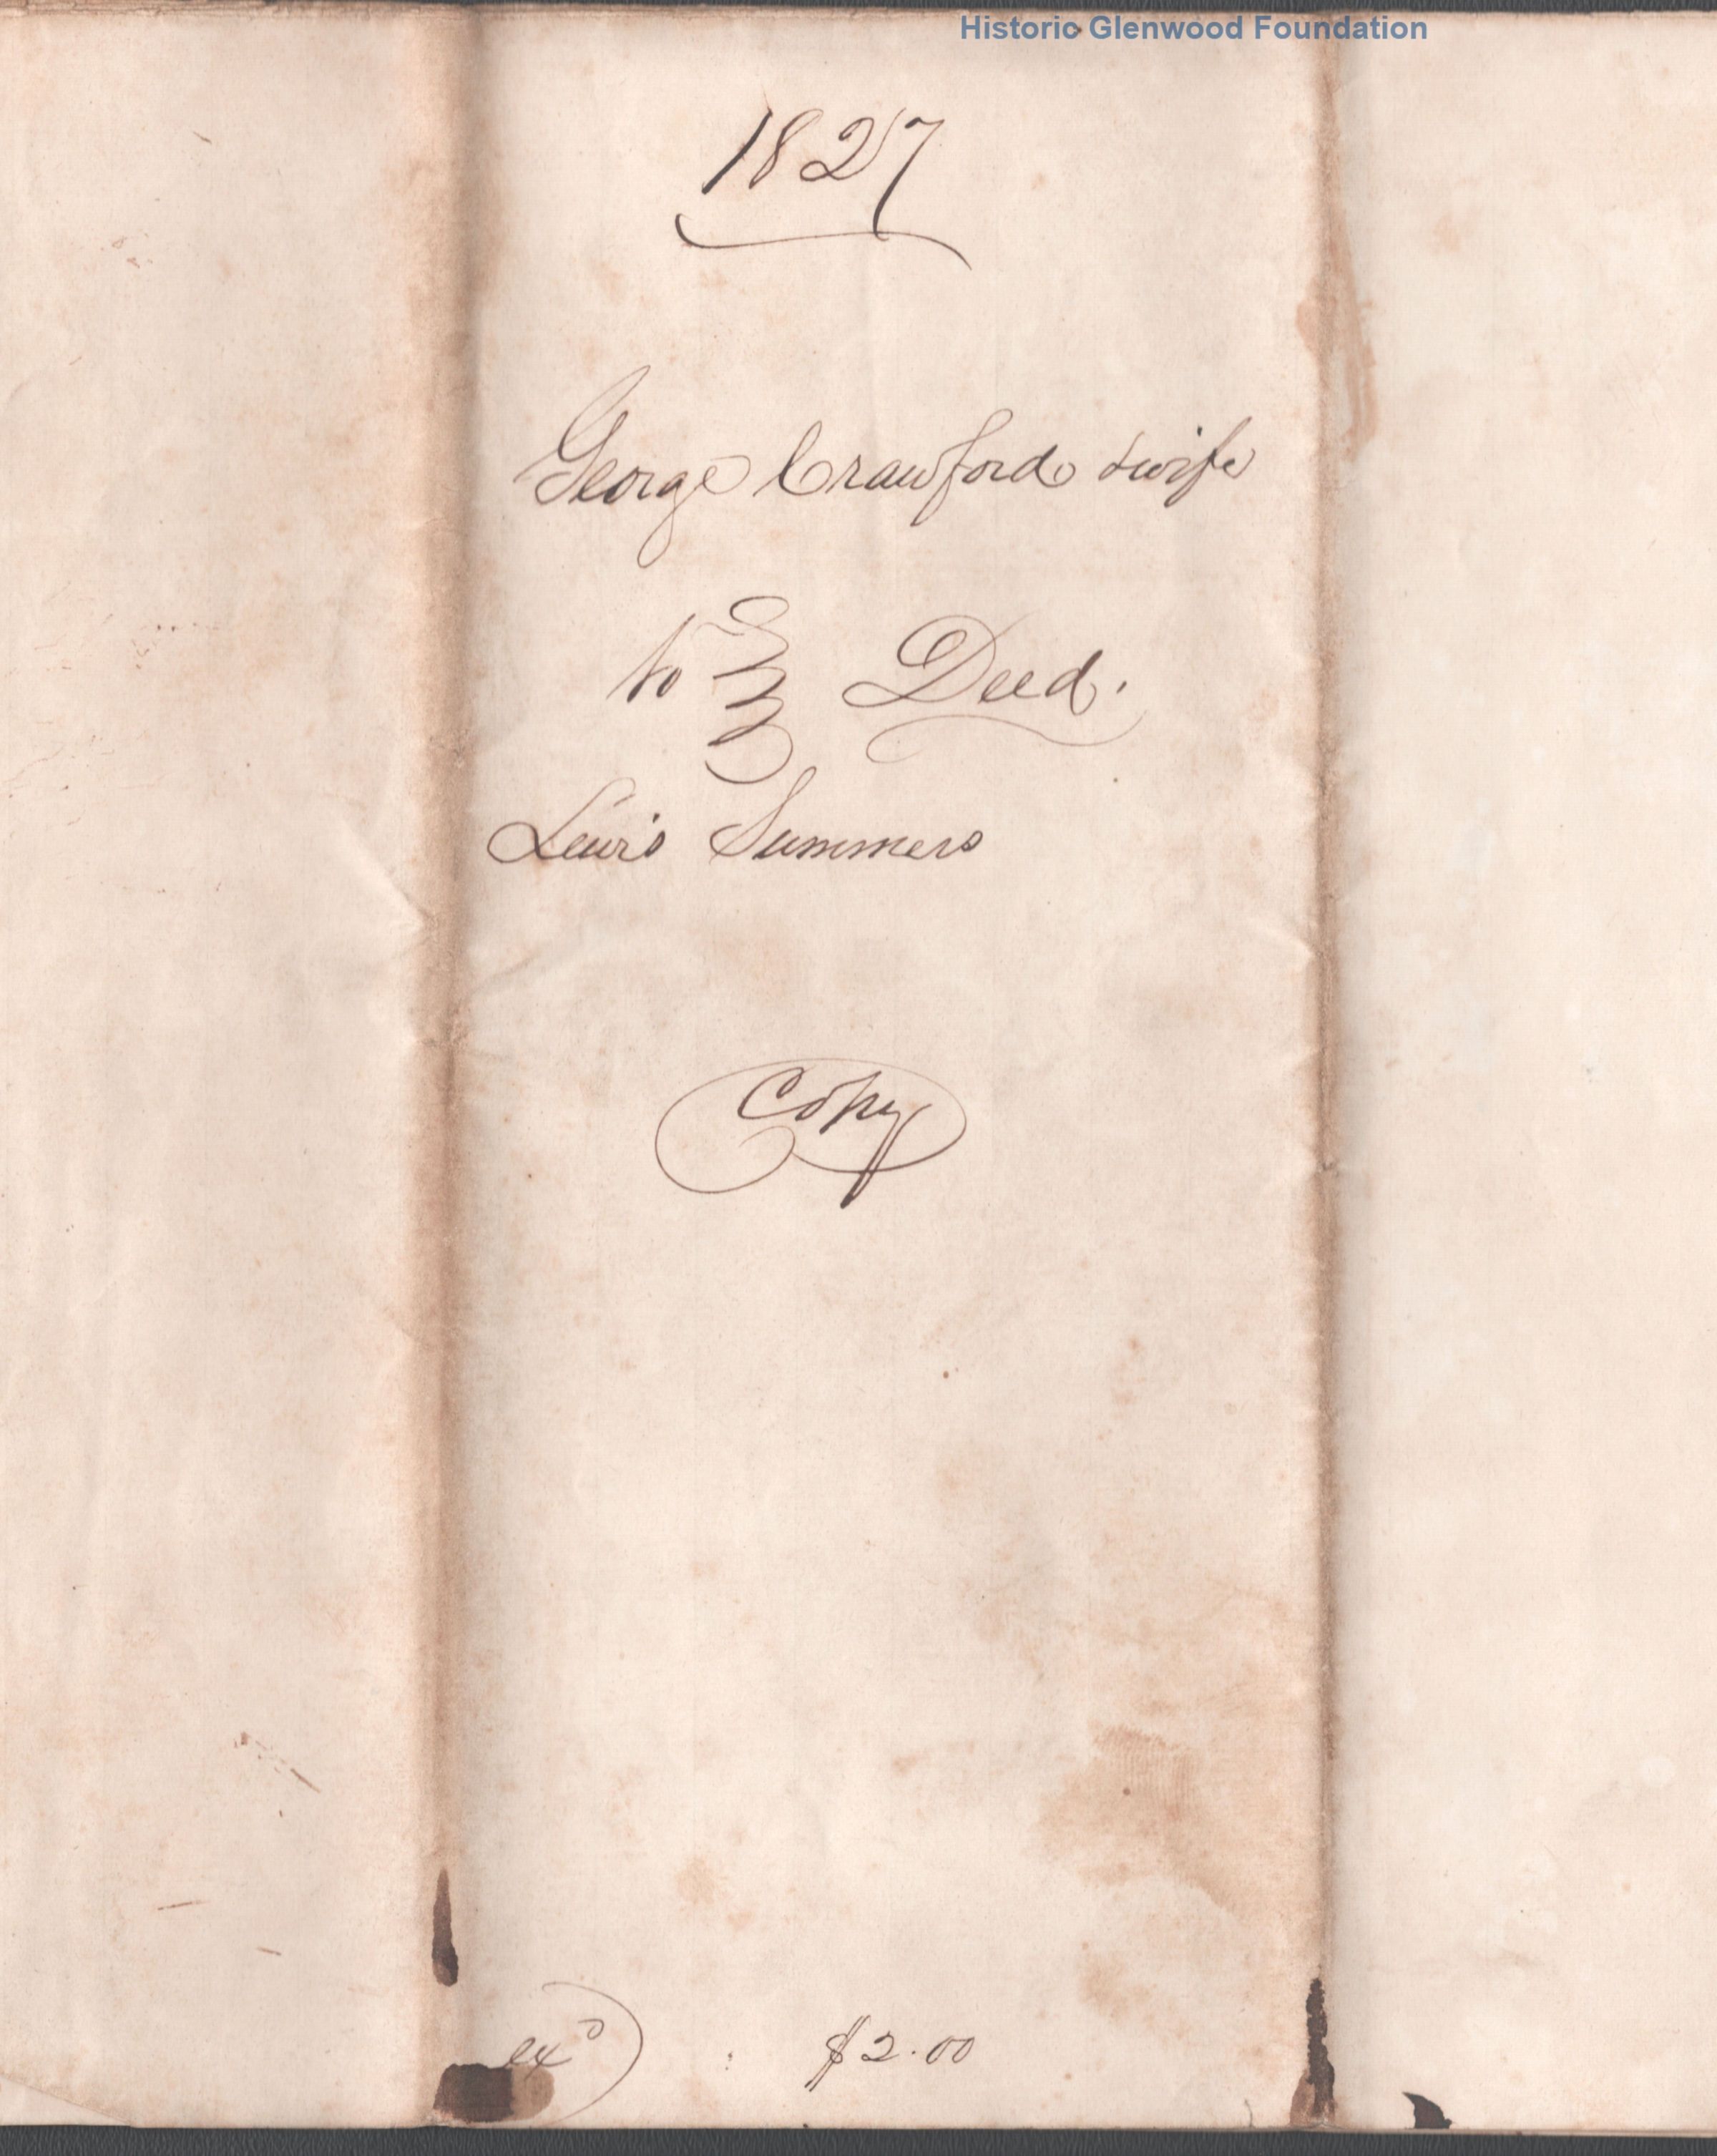 Historic Glenwood Foundation
1827
George Crawford & wife
to Deed.
Lewis Summers
Copy
exd $2.00